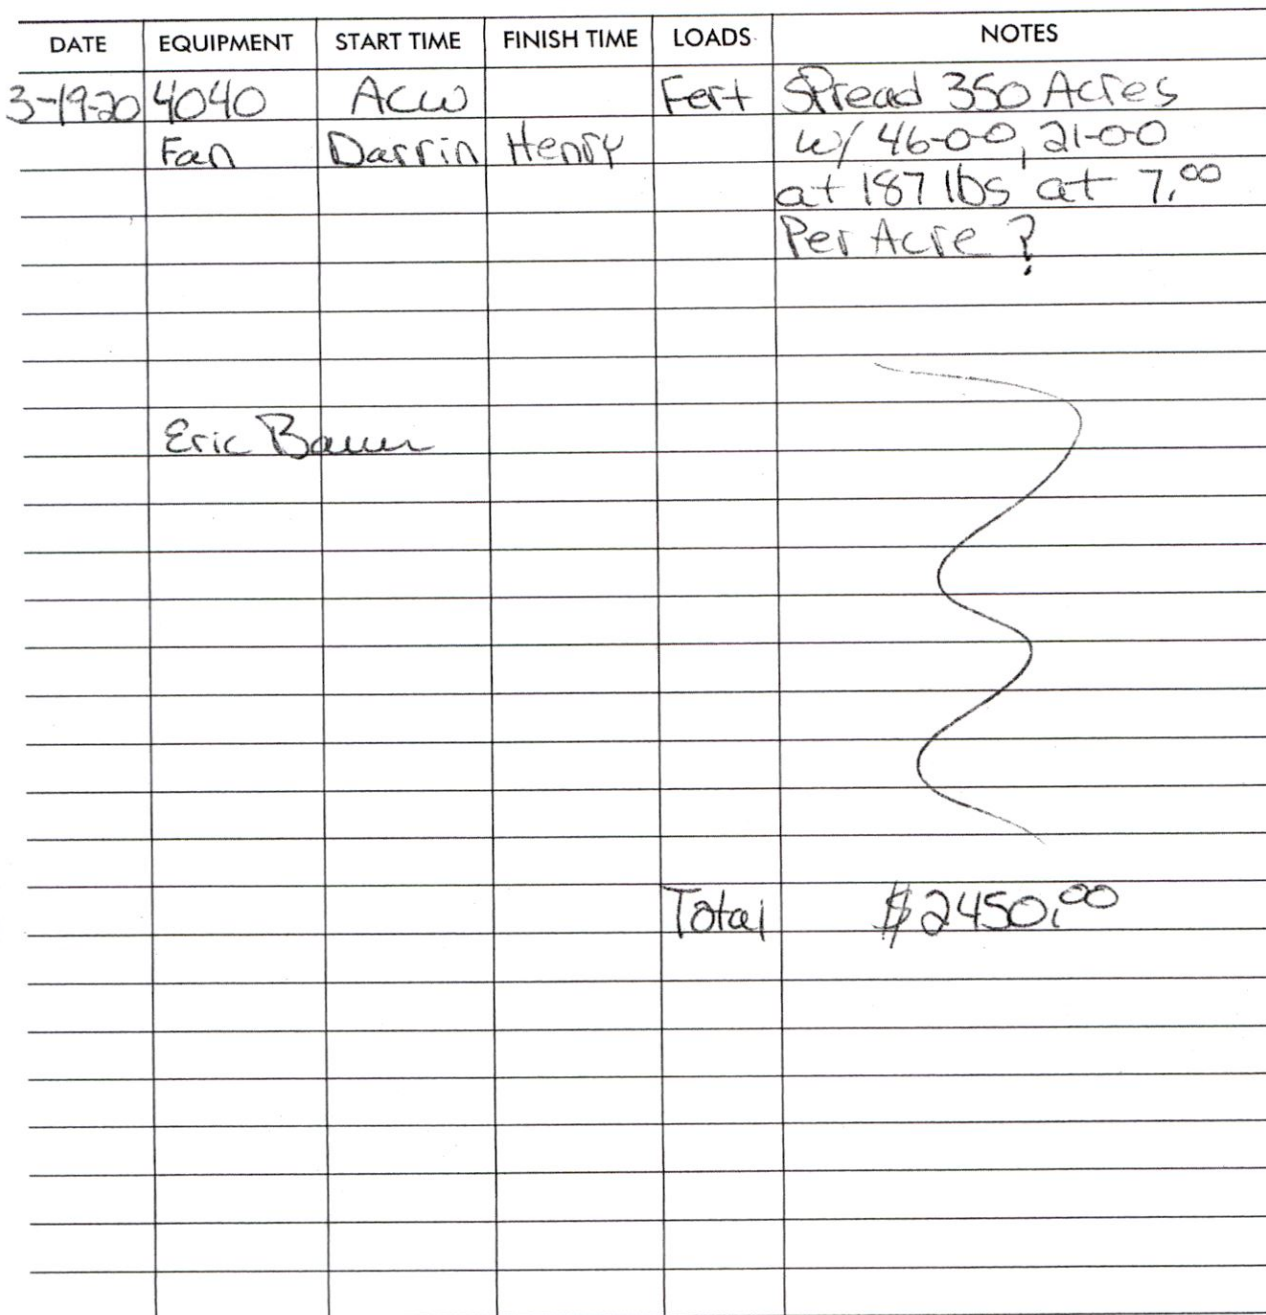 DATE EQUIPMENT START TIME FINISH TIME LOADS NOTES
3-19-20 4040 ACW Fert Spread 350 Acres
Fan Darrin Henry w/ 46-0-0, 21-0-0
at 187 lbs at 7.00
Per Acre ?
Eric Bauer
Total $2450.00